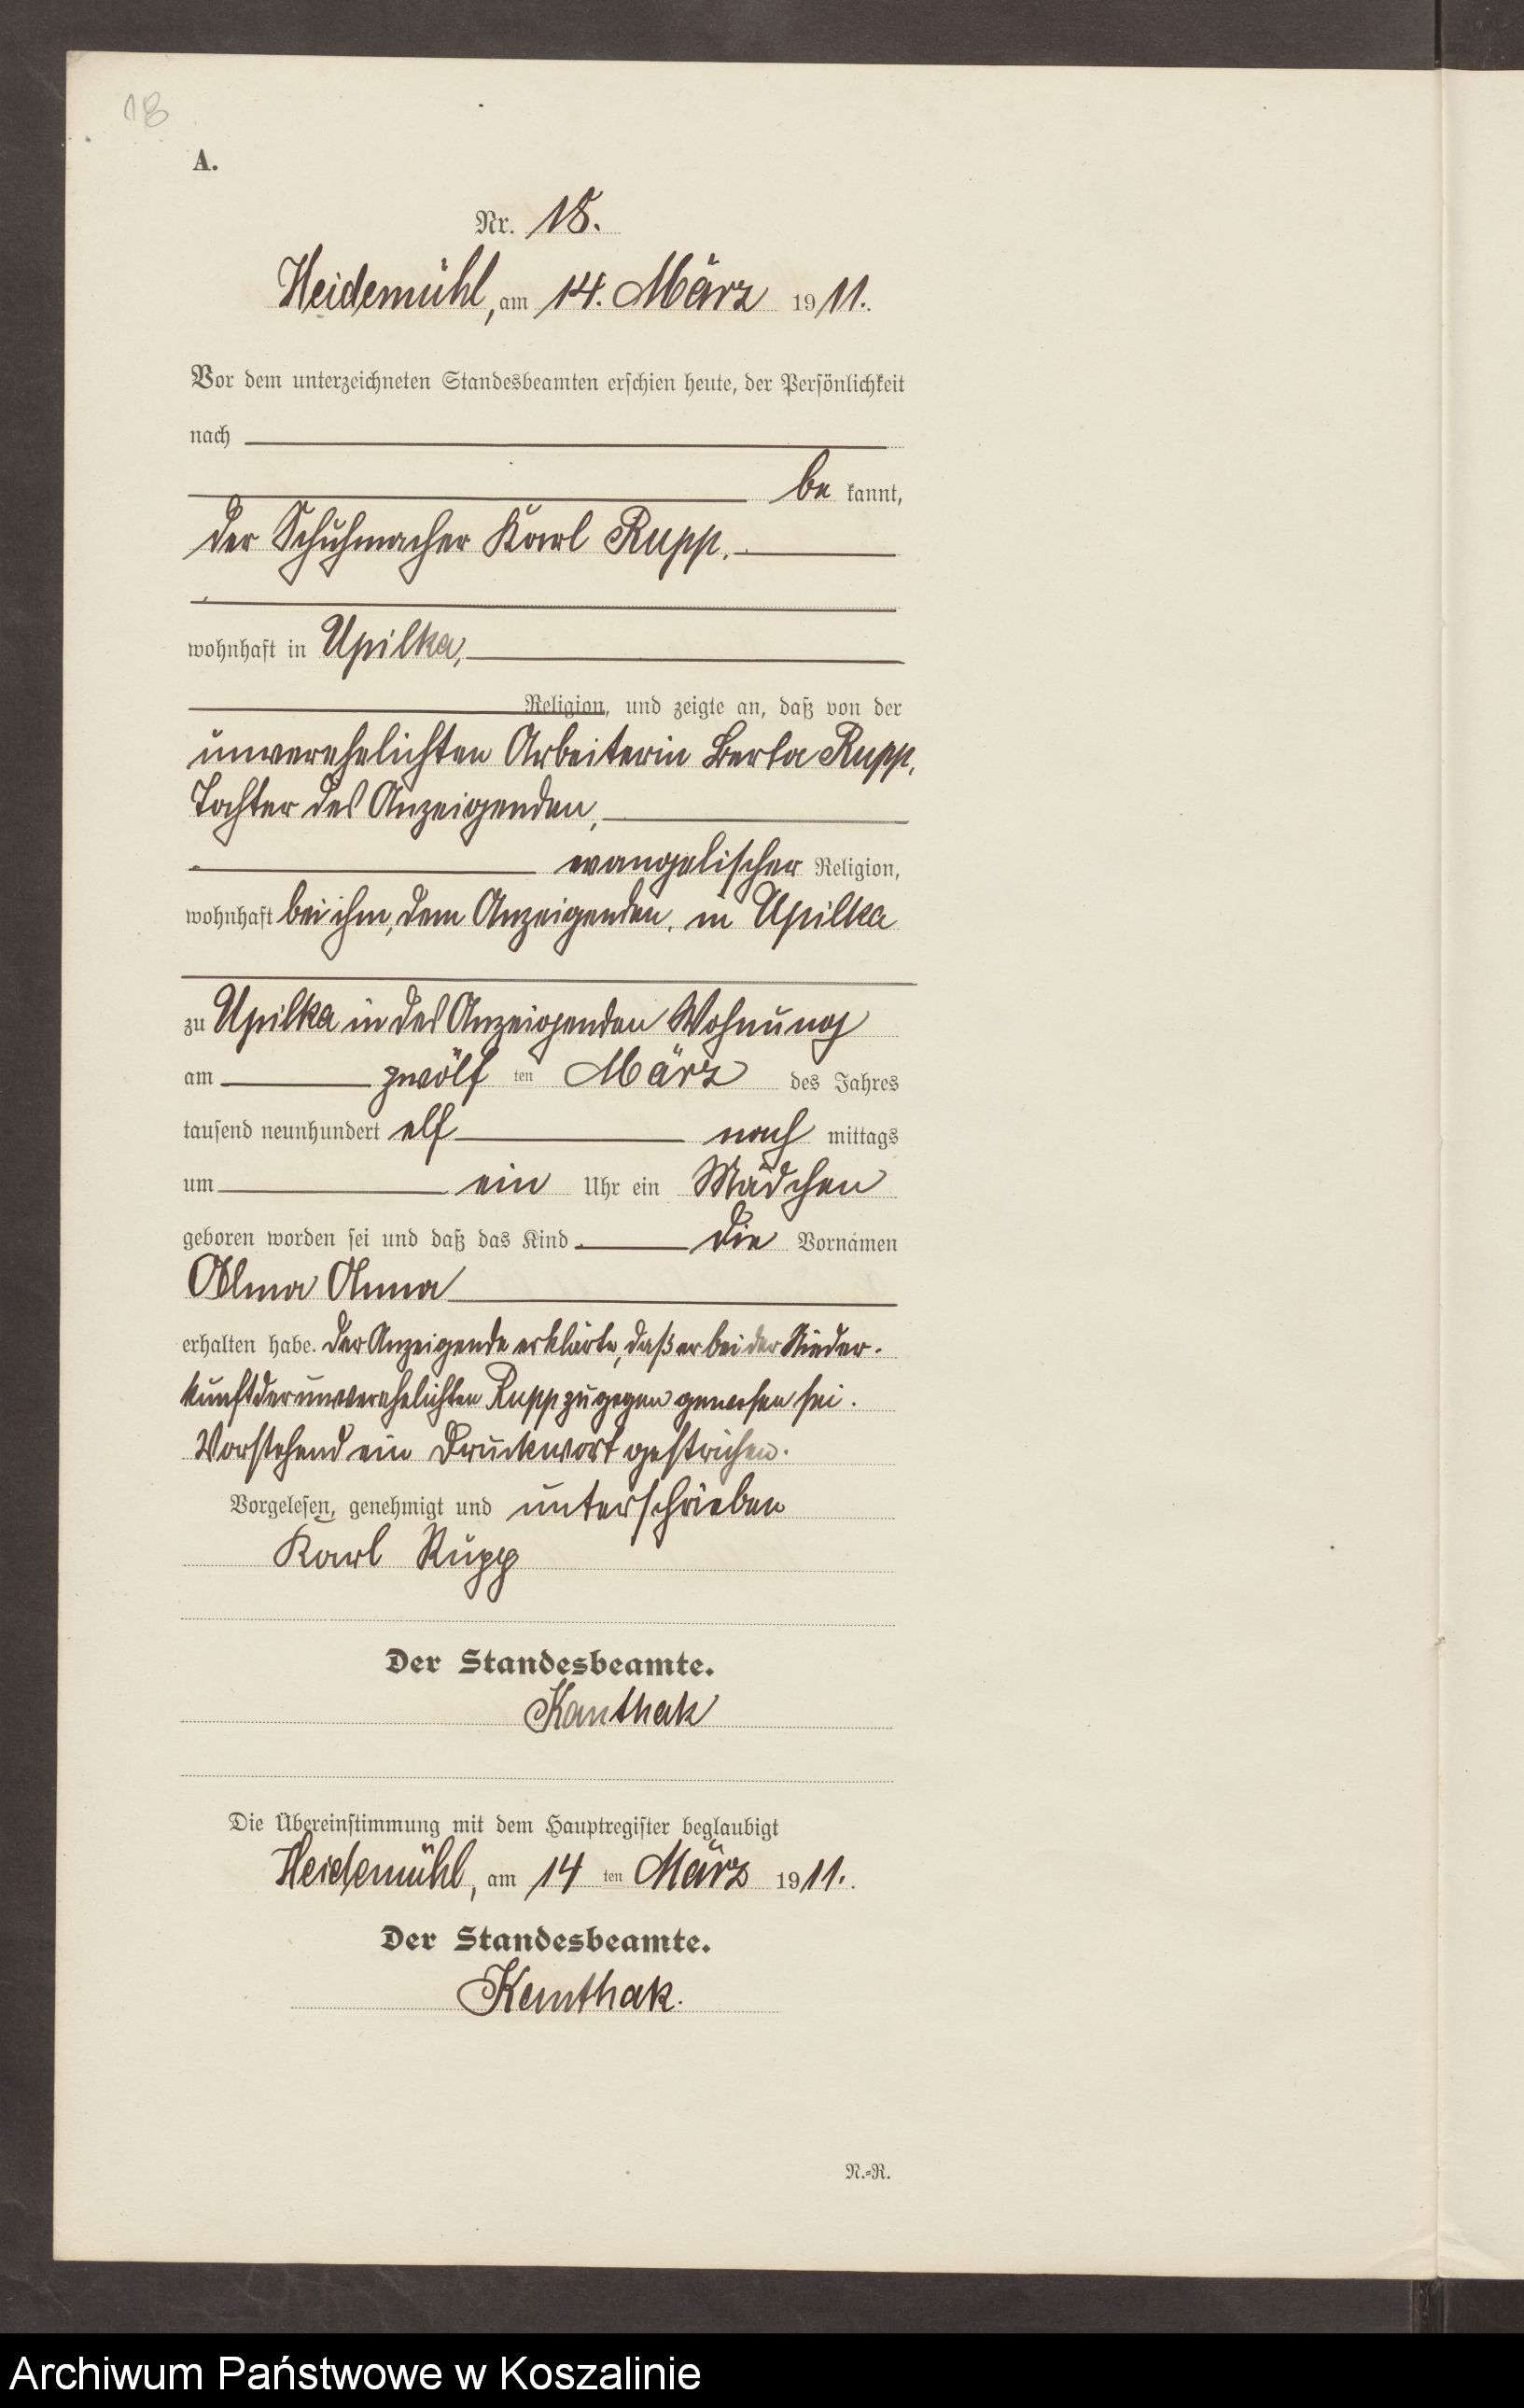 18
A.
Nr. 18.
Heidemühl, am 14. März 1911.
Vor dem unterzeichneten Standesbeamten erschien heute, der Persönlichkeit
nach
be kannt,
der Schuhmacher Karl Rupp,
wohnhaft in Upilka,
Religion, und zeigte an, daß von der
unverehelichten Arbeiterin Berta Rupp,
Tochter des Anzeigenden,
evangelischer Religion,
wohnhaft bei ihm, dem Anzeigenden, in Upilka
zu Upilka in des Anzeigenden Wohnung
am zwölf ten März des Jahres
tausend neunhundert elf nach mittags
um ein Uhr ein Mädchen
geboren worden sei und daß das Kind die Vornamen
Alma Anna
erhalten habe. Der Anzeigende erklärte, daß er bei der Nieder-
kunft der unverehelichten Rupp zugegen gewesen sei.
Vorstehend ein Druckwort gestrichen.
Vorgelesen, genehmigt und unterschrieben
Karl Rupp
Der Standesbeamte.
Kanthak
Die Übereinstimmung mit dem Hauptregister beglaubigt
Heidemühl, am 14 ten März 1911.
Der Standesbeamte.
Kanthak.
N.=R.
Archiwum Państwowe w Koszalinie